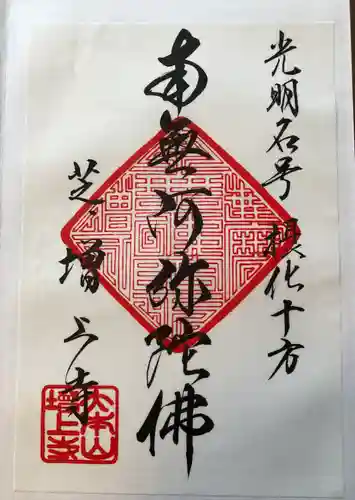 光明名号 摂化十方
南無阿弥陀佛
芝 增上寺
大本山
増上寺